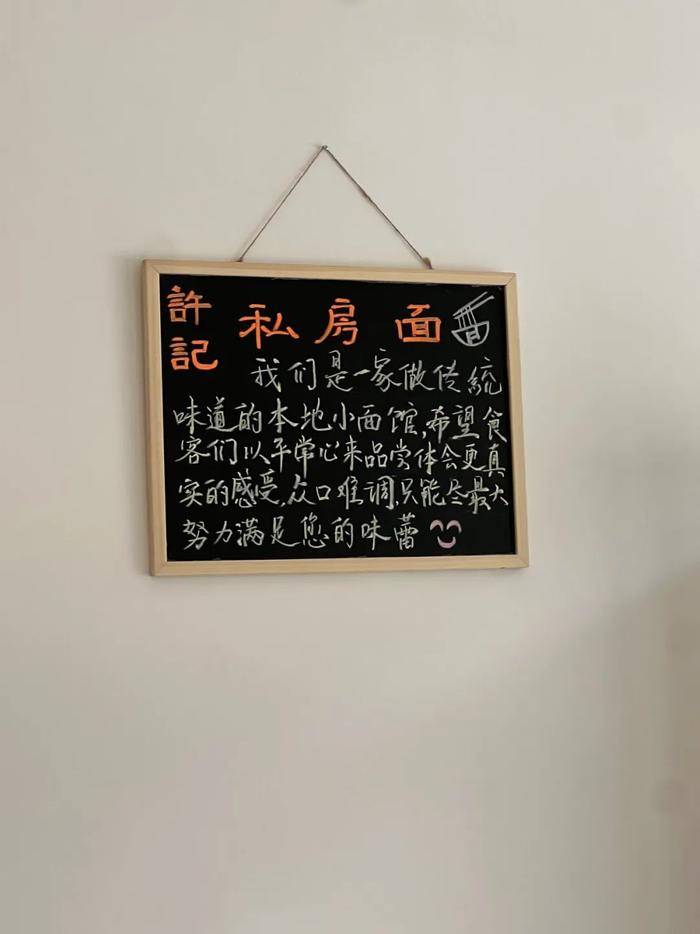 許記
私房面
我们是一家做传統
味道的本地小面馆,希望食
客们以平常心来品尝体会更真
实的感受,众口难调,只能尽最大
努力满足您的味蕾